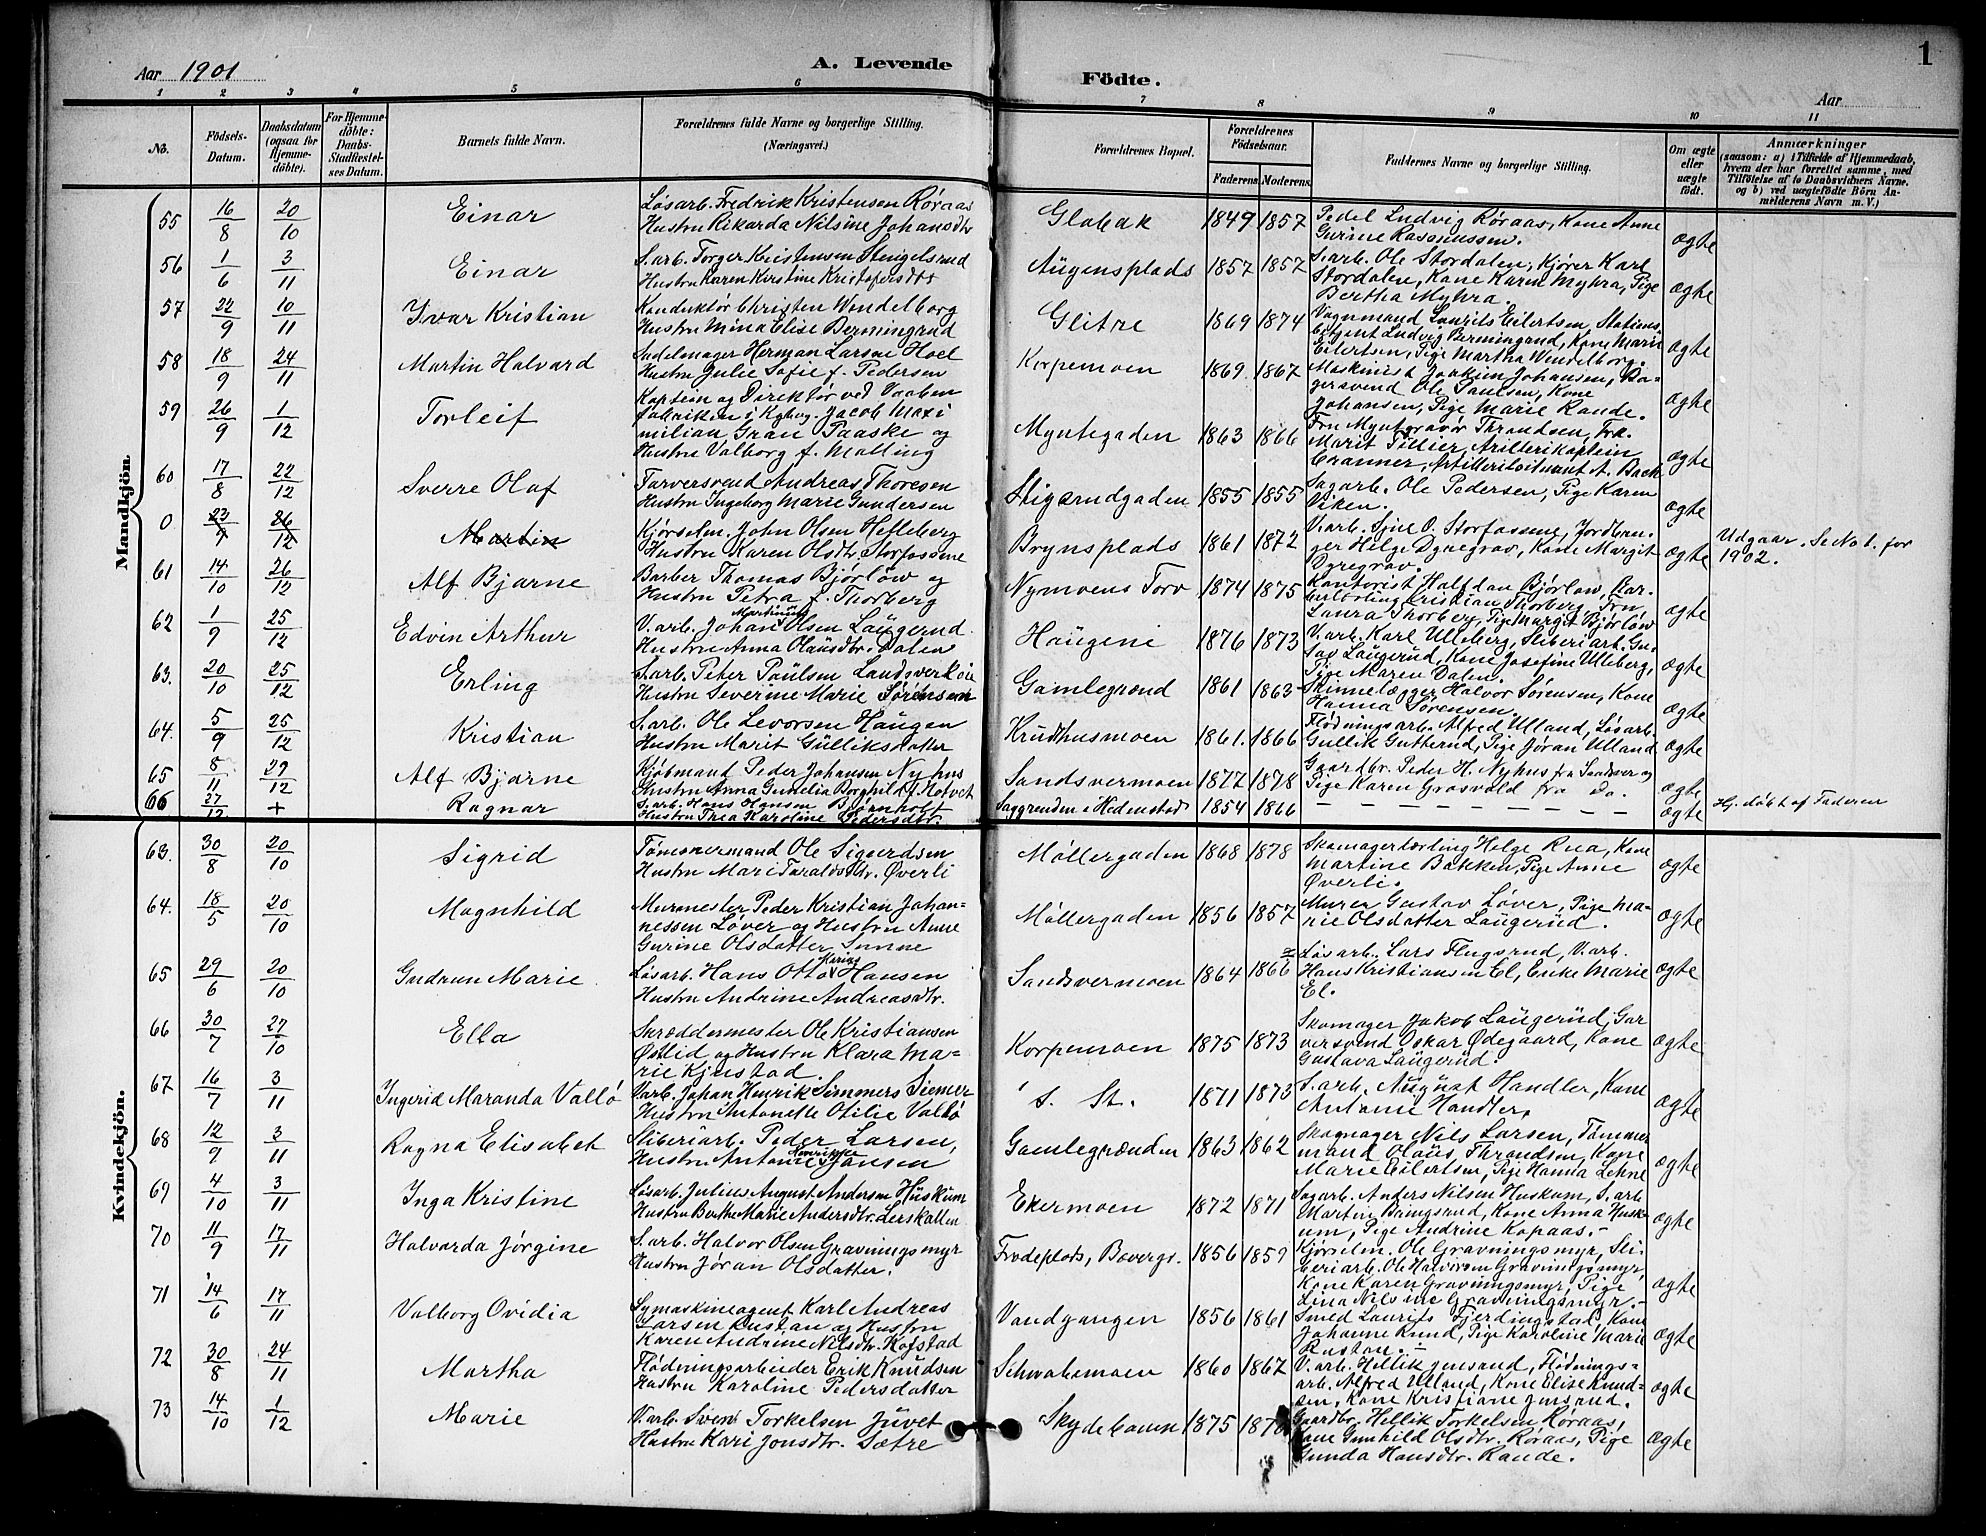 1
Aar 1901
A. Levende
Födte.
Aar
1 2 3 4 5 6 7 8 9 10 11
No.
Födsels-Datum.
Daabsdatum (ogsaa for Hjemmedöbte).
For Hjemmedöbte: Daabs-Stadfæstelses Datum.
Barnets fulde Navn.
Forældrenes fulde Navne og borgerlige Stilling. (Næringsvei.)
Forældrenes Bopæl.
Forældrenes Födselsaar.
Faderens. Moderens.
Faddernes Navne og borgerlige Stilling.
Om ægte eller uægte födt.
Anmærkninger
(saasom: a) i Tilfælde af Hjemmedaab, hvem der har forrettet samme, med Tilföielse af to Daabsvidners Navne, og b) ved uægtefödte Börn Anmelderens Navn m. V.)
Mandkjön
55 16/8 20/10 Einar Løsarb. Fredrik Kristensen Røraas Hustru Rikarda Nilsine Johansdtr Glabak 1849 1857 Pedel Ludvig Røraas, Kone Anne Gurine Rasmussen. ægte
56 1/6 3/11 Einar S.arb. Torger Kristensen Stengelsrud Hustru Karen Kirstine Kristofersdtr Augensplads 1857 1857 S.arb. Ole Stordalen, Kjører Karl Stordalen, Kone Karen Myhra, Pige Bertha Myhra. ægte
57 22/9 10/11 Ivar Kristian Konduktör Christen Wendelborg Hustru Mina Elise Bermingrud Glitre 1869 1874 Vognmand Laurits Eilertsen, Stations-betjent Ludvig Bermingrud, Kone Marie Eilertsen, Pige Martha Wendelborg. ægte
58 18/9 24/11 Martin Halvard Sadelmager Herman Larsen Hoel Hustru Julie Sofie f. Pedersen Korpemoen 1869. 1867 Maskinist Joakim Johansen, Bagersvend Ole Paulsen, Kone Johansen, Pige Marie Rande. ægte
59 26/9 1/12 Torleif Kaptein og Direktör ved Vaabenfabriken i Kgbg. Jacob Maximilian Gran Paaske og Hustru Valborg f. Malling Myntegaden 1863 1866 Fru Myntgravör Throndsen, Frk. Marit Tillier, Artillerikaptein Cranner, Artilleriloitnant A. Bach ægte
60 17/8 22/12 Sverre Olaf Farversvend Andreas Thoresen Hustru Ingeborg Marie Gundersen Stigerudgaden 1855 1855 Sagarb. Ole Pedersen, Pige Karen Viken. ægte
0 23/9 26/12 Martin Kjörselm. John Olsen Helleberg Hustru Karen Olsdtr. Storfossene Brynsplads 1861 1872 V.arb. O. Storfossene, Jordbruger Helge Dyregrav, Kone Margit Dyregrav. ægte Udgaar. Se No 1. for 1902.
61 14/10 26/12 Alf Bjarne Barber Thomas Bjørløw og Hustru Petra f. Thorberg Nymoens Torv 1874 1875 Kontorist Halfdan Bjørløw, Barberlærling Kristian Thorberg, Fru Laura Thorberg, Pige Margit Bjørløw ægte
62 1/9 25/12 Edvin Arthur V.arb. Johan Martinius Olsen Laugerud. Hustru Anna Olausdtr. Dalen Haugene 1876 1873 V.arb. Karl Ulleberg, Sliberiarb. Gustav Laugerud, Kone Josefine Ulleberg, Pige Maren Dalen. ægte
63. 20/10 25/12 Erling S.arb. Peter Paulsen Landsverkeie Hustru Severine Marie Sørensen Gamlegrænd 1861 1863 Skinnelægger Halvor Sørensen, Kone Hanna Sørensen. ægte
64. 5/9 25/12 Kristian S.arb. Ole Levorsen Haugen Hustru Marit Gulliksdatter Krudhusmoen 1861. 1866 Flödningsarb. Alfred Ulland, Løsarb. Gullik Gutterud, Pige Jöran Ulland ægte
65 8/11 29/12 Alf Bjarne Kjöbmand Peder Johansen Nyhus Hustru Anna Gunelia Borghild f. Hotvet Sandsvermoen 1877 1878 Gaardbr. Peder H. Nyhus fra Sandsver og Pige Karen Grosvold fra do. ægte
66 27/12 + Ragnar S.arb. Hans Hansen Bjørnholt Hustru Thea Karoline Pedersdtr. Saggrenden i Hedenstad 1854 1866 — — — — — — — ægte Hj. döbt af Faderen
Kvindekjön.
63. 30/8 20/10 Sigrid Tömmermand Ole Sigurdsen Hustru Mari Taraldsdtr. Øverli Möllergaden 1868 1878 Skomagerlærling Helge Rua, Kone Martine Bakken, Pige Anne Øverli. ægte
64. 18/5 20/10 Magnhild Murmester Peder Kristian Johannessen Løver og Hustru Anne Gurine Olsdatter Möllergaden 1856 1857 Murer Gustav Løver, Pige Marie Olsdatter Laugerud. ægte
65 29/6 20/10 Gudrun Marie Løsarb. Hans Otto Hansen Hustru Andrine Andreasdtr. Sandsvermoen 1864 1866 Løsarb. Lars Flugsrud, V.arb. Hans Kristiansen El, Enke Marie El. ægte
66 30/7 27/10 Ella Skræddermester Ole Kristiansen Østlid og Hustru Klara Marie Kjenstad. Korpemoen 1875 1873 Skomager Jakob Laugerud, Garversvend Oskar Ødegaard, Kone Gustava Laugerud. ægte
67 16/7 3/11 Ingerid Maranda Vallö V.arb. Johan Henrik Simmers Siemer Hustru Antonette Otilie Vallö S. St. 1871 1873 S.arb. August Handler, Kone Antonie Handler, ægte
68 12/9 3/11 Ragna Elisabet Sliberiarb. Peder Larsen, Hustru Antonie Jansen Gamlegrænden 1863 1862 Skomager Nils Larsen, Tömmermand Olaus Throndsen, Kone Marie Eilertsen, Pige Hanna Lehne ægte
69 4/10 3/11 Inga Kristine Løsarb. Julius August Andersen Huskum Hustru Berthe Marie Andersdtr. Leiskallen Ekermoen 1872 1871 Sagarb. Anders Nilsen Huskum, S.arb Martin Bringsrud, Kone Anna Huskum, Pige Andrine Kopaas. - ægte
70 11/9 17/11 Halvarda Jörgine S.arb. Halvor Olsen Gravningsmyr Hustru Jöran Olsdatter. Frodeplads, Bævergr. 1856 1859 Kjörselm. Ole Gravningsmyr, Sliberiarb. Ole Halvorsen Gravningsmyr, Kone Karen Gravningsmyr, Pige Lina Nilsine Gravningsmyr. - ægte
71 14/6 17/11 Valborg Ovidia Symaskineagent Karl Andreas Larsen Rustan og Hustru Karen Andrine Nilsdtr. Kofstad Vandgangen 1856 1861 Smed Laurits Fjerdingstad, Kone Johanne Rund, Pige Karoline Marie Rustan. - ægte
72 30/8 24/11 Martha Flödningsarbeider Erik Knudsen Hustru Karoline Pedersdatter Schwabemoen 1860 1867 V.arb. Hellik Jensand, Flödningsarb. Alfred Ulland, Kone Elise Knudsen, Kone Kristiane Jensand. ægte
73 14/10 1/12 Marie V.arb. Sven Torkelsen Juvet Hustru Kari Jonsdtr. Sætre Skydebanen 1875 Gaardbr. Hellik Torkelsen Røraas, Kone Gunhild Olsdtr. Røraas, Pige Gunda Hansdtr. Rande. ægte